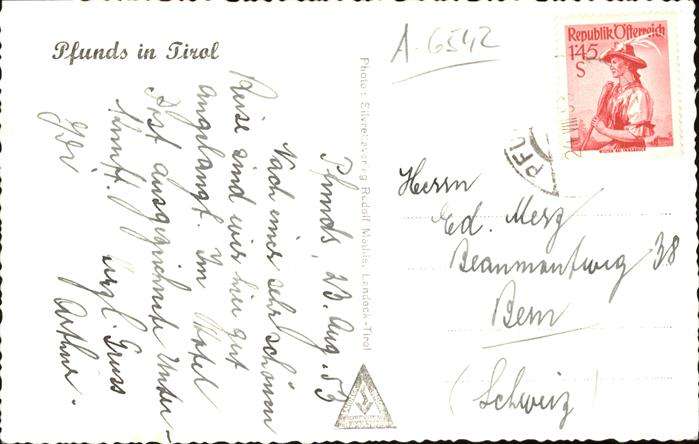 Pfunds in Tirol
Pfunds, 23. Aug. 53
Nach einer sehr schönen
Reise sind wir hier gut
angelangt. Im Hotel
Post ausgezeichnete Unter-
kunft.
Herzl. Gruss
Arthur.
Rudolf Mathis, Landeck-Tirol
A. 6542
Republik Österreich
1.45
S
PFU
Herrn
Ed. Merz
Beaumontweg 38
Bern
(Schweiz)